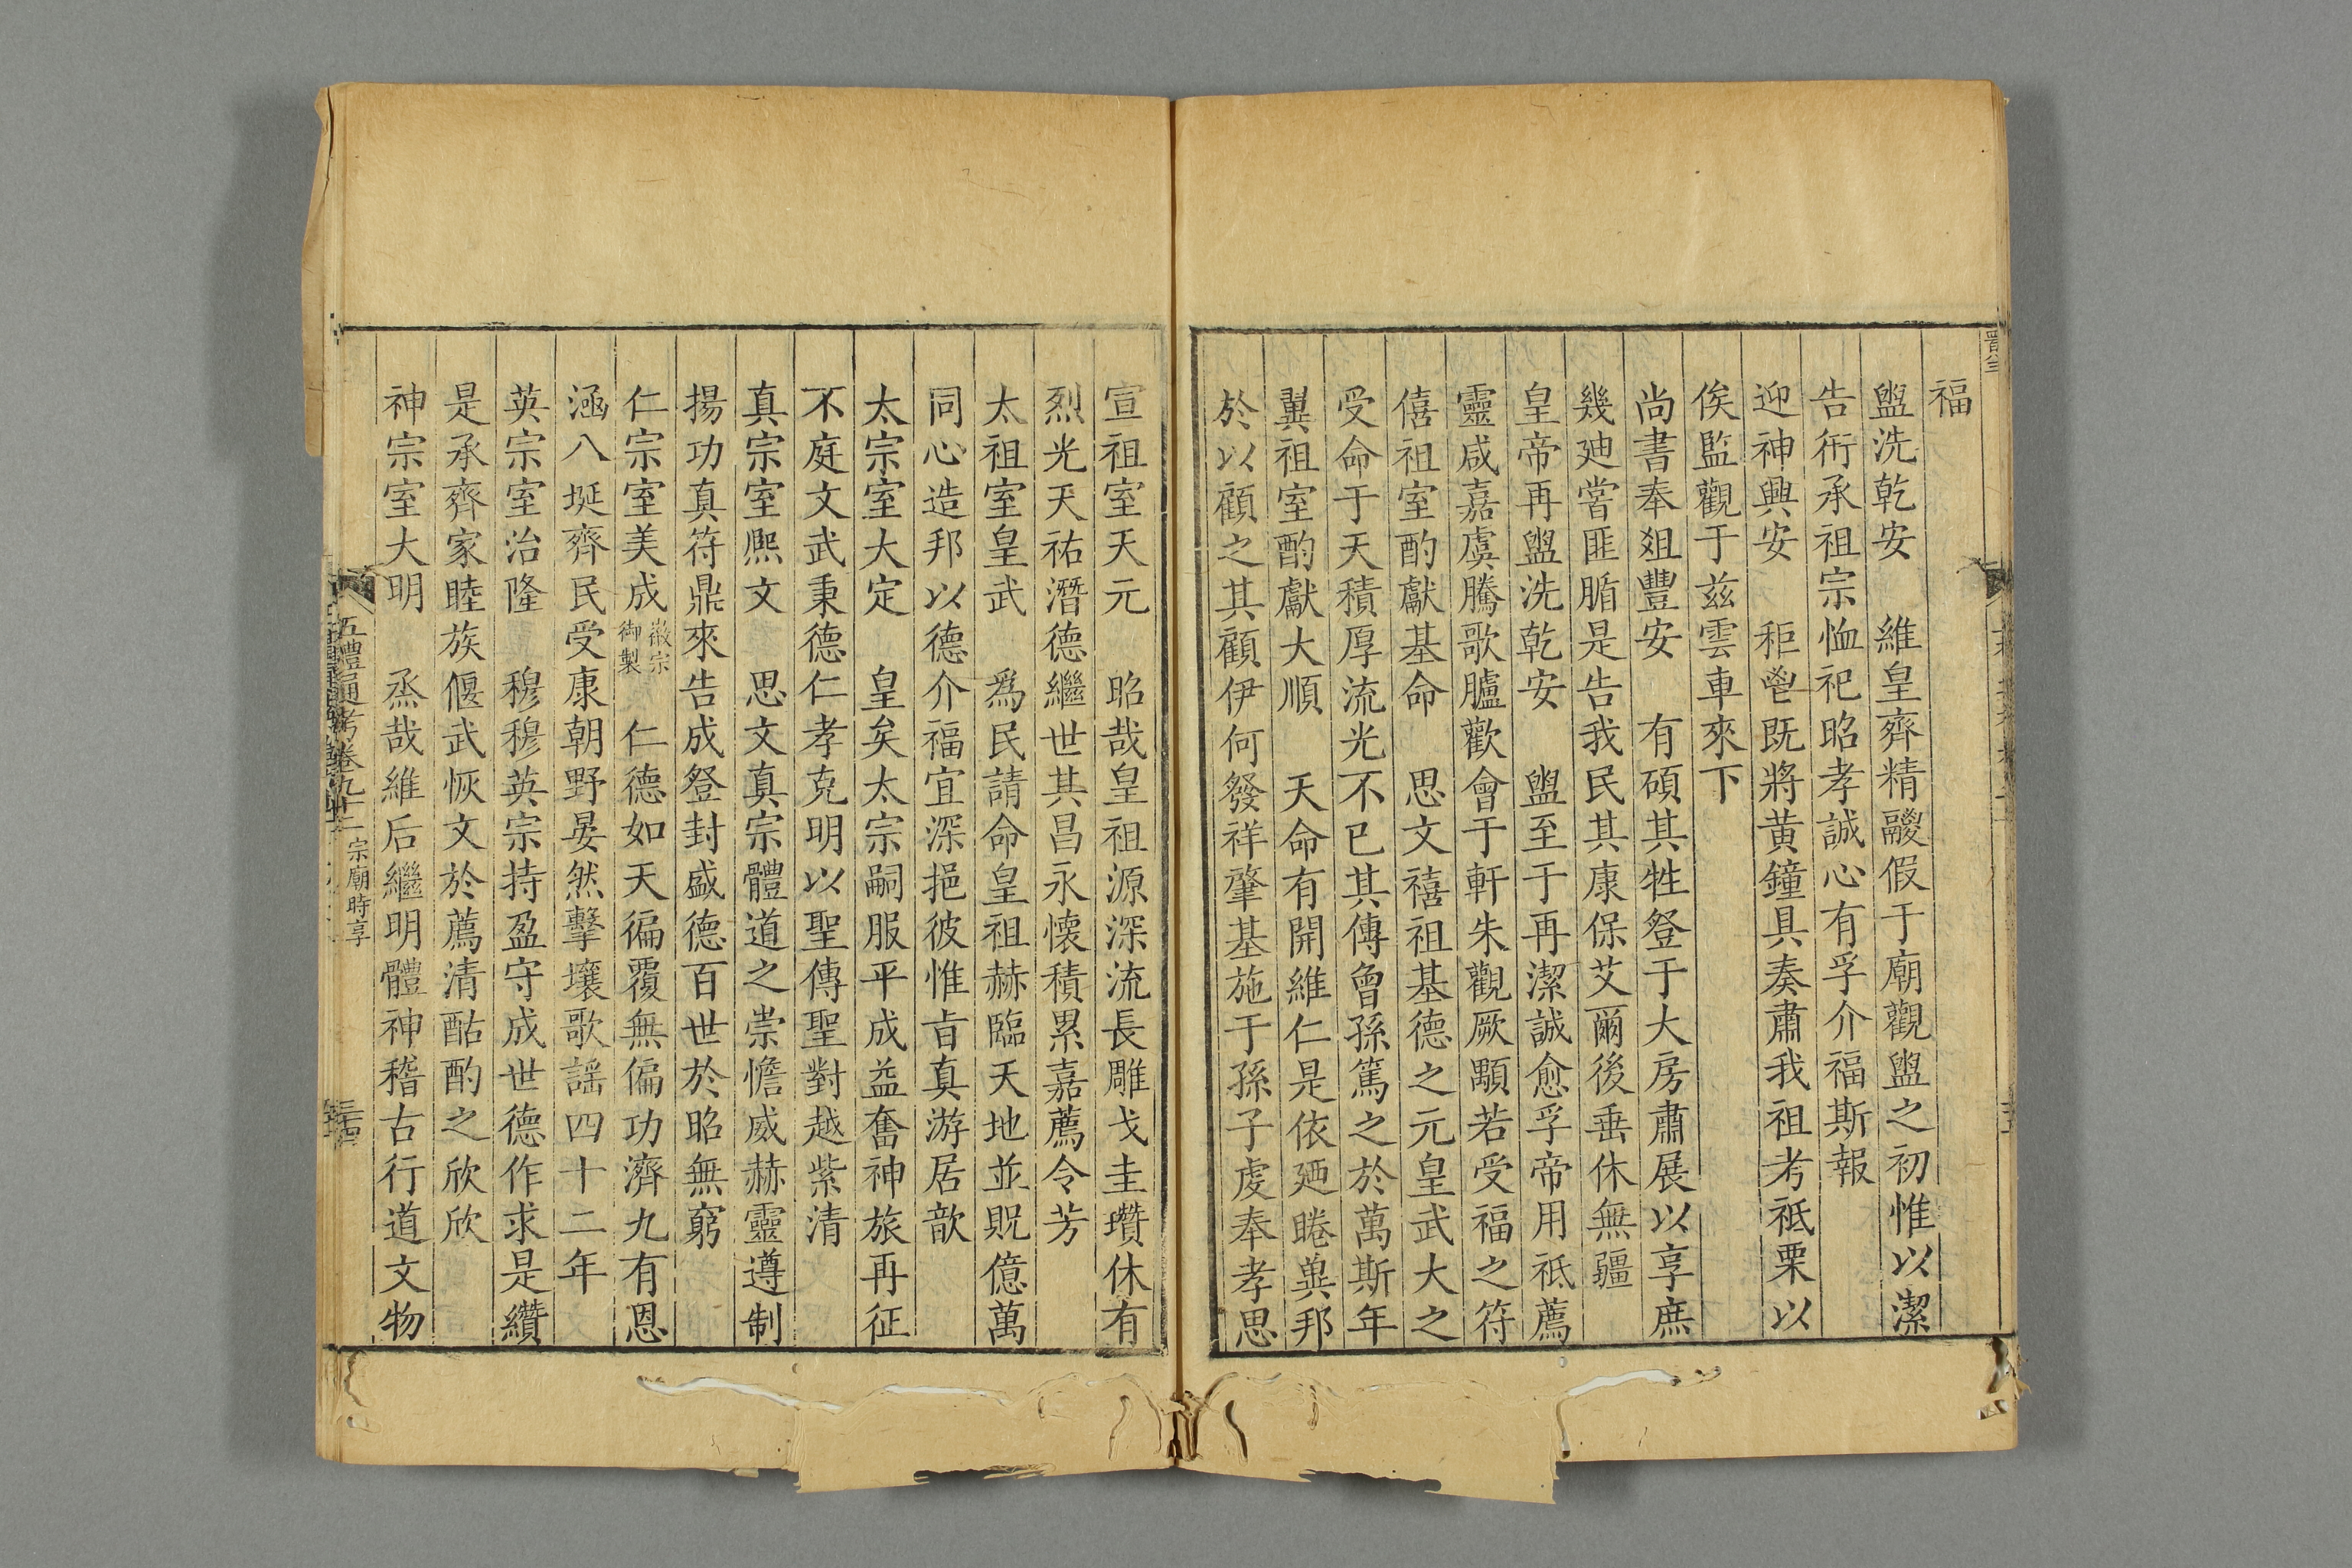 福
盥洗乾安　維皇齊精鬷假于廟觀盥之初惟以潔
告衎承祖宗恤祀昭孝誠心有孚介福斯報
迎神興安　秬鬯既將黄鐘具奏肅我祖考祗栗以
俟監觀于兹雲車來下
尚書奉俎豐安　有碩其牲登于大房肅展以享庶
幾廸嘗匪腯是告我民其康保艾爾後垂休無疆
皇帝再盥洗乾安　盥至于再潔誠愈孚帝用祗薦
靈咸嘉虞騰歌臚歡會于軒朱觀厥顒若受福之符
僖祖室酌獻基命　思文禧祖基德之元皇武大之
受命于天積厚流光不已其傳曾孫篤之於萬斯年
翼祖室酌獻大順　天命有開維仁是依廼睠巽邦
於以顧之其顧伊何發祥肇基施于孫子虔奉孝思
宣祖室天元　昭哉皇祖源深流長雕戈圭瓚休有
烈光天祐潛德繼世其昌永懷積累嘉薦令芳
太祖室皇武　爲民請命皇祖赫臨天地並貺億萬
同心造邦以德介福宜深挹彼惟旨真游居歆
太宗室大定　皇矣太宗嗣服平成益奮神旅再征
不庭文武秉德仁孝克明以聖傳聖對越紫清
真宗室熈文　思文真宗體道之崇憺威赫靈遵制
揚功真符鼎來告成登封盛德百世於昭無窮
仁宗室美成徽宗御製　仁德如天徧覆無偏功濟九有恩
涵八埏齊民受康朝野晏然擊壤歌謡四十二年
英宗室治隆　穆穆英宗持盈守成世德作求是纘
是承齊家睦族偃武恢文於薦清酤酌之欣欣
神宗室大明　烝哉維后繼明體神稽古行道文物
五禮通考卷九十二　宗廟時享